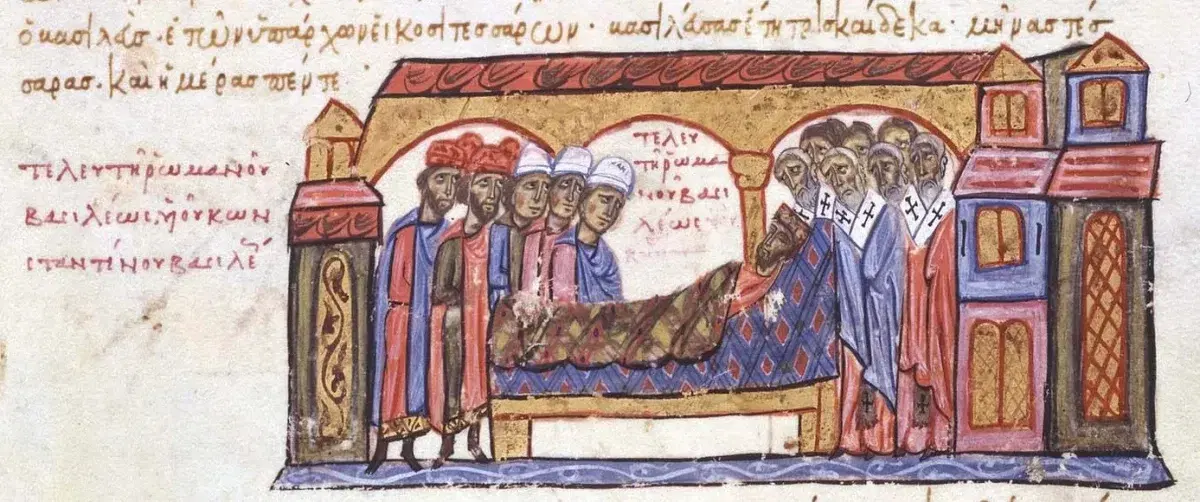 ὁ βασιλεὺς· ἐτῶν ὑπάρχων εἰκοσιτεσσάρων· βασιλεύσας ἔτη τρισκαίδεκα· μῆνας τέσ
σαρας· καὶ ἡμέρας πέντε
τελευτὴ ῥωμανοῦ
βασιλέως υἱοῦ κων
σταντίνου βασιλέ
τελευ
τὴ ῥωμα
νοῦ βασι
λέως